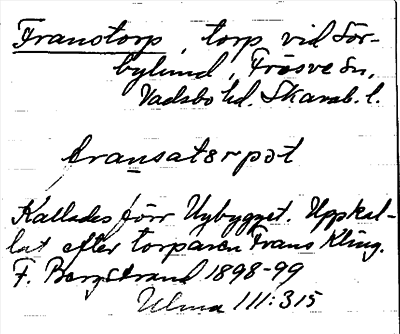 Franstorp, torp vid Sör-
bylund, Frösve sn,
Vadsbo hd. Skarab. l.
fransatørpət
Kallades förr Nybygget. Uppkal-
lat efter torparen Frans Kling.
F. Bergstrand 1898-99
Ulma 111:315